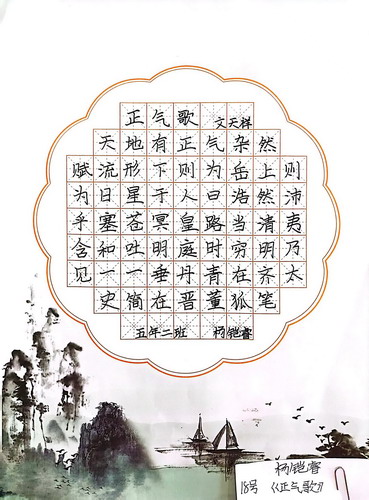 正气歌 文天祥
天地有正气杂然
赋流形下则为岳上则
为日星于人曰浩然沛
乎塞苍冥皇路当清夷
含和吐明庭时穷明乃
见一一垂丹青在齐太
史简在晋董狐笔
五年二班 杨铠睿
杨铠睿
18号 《正气歌》